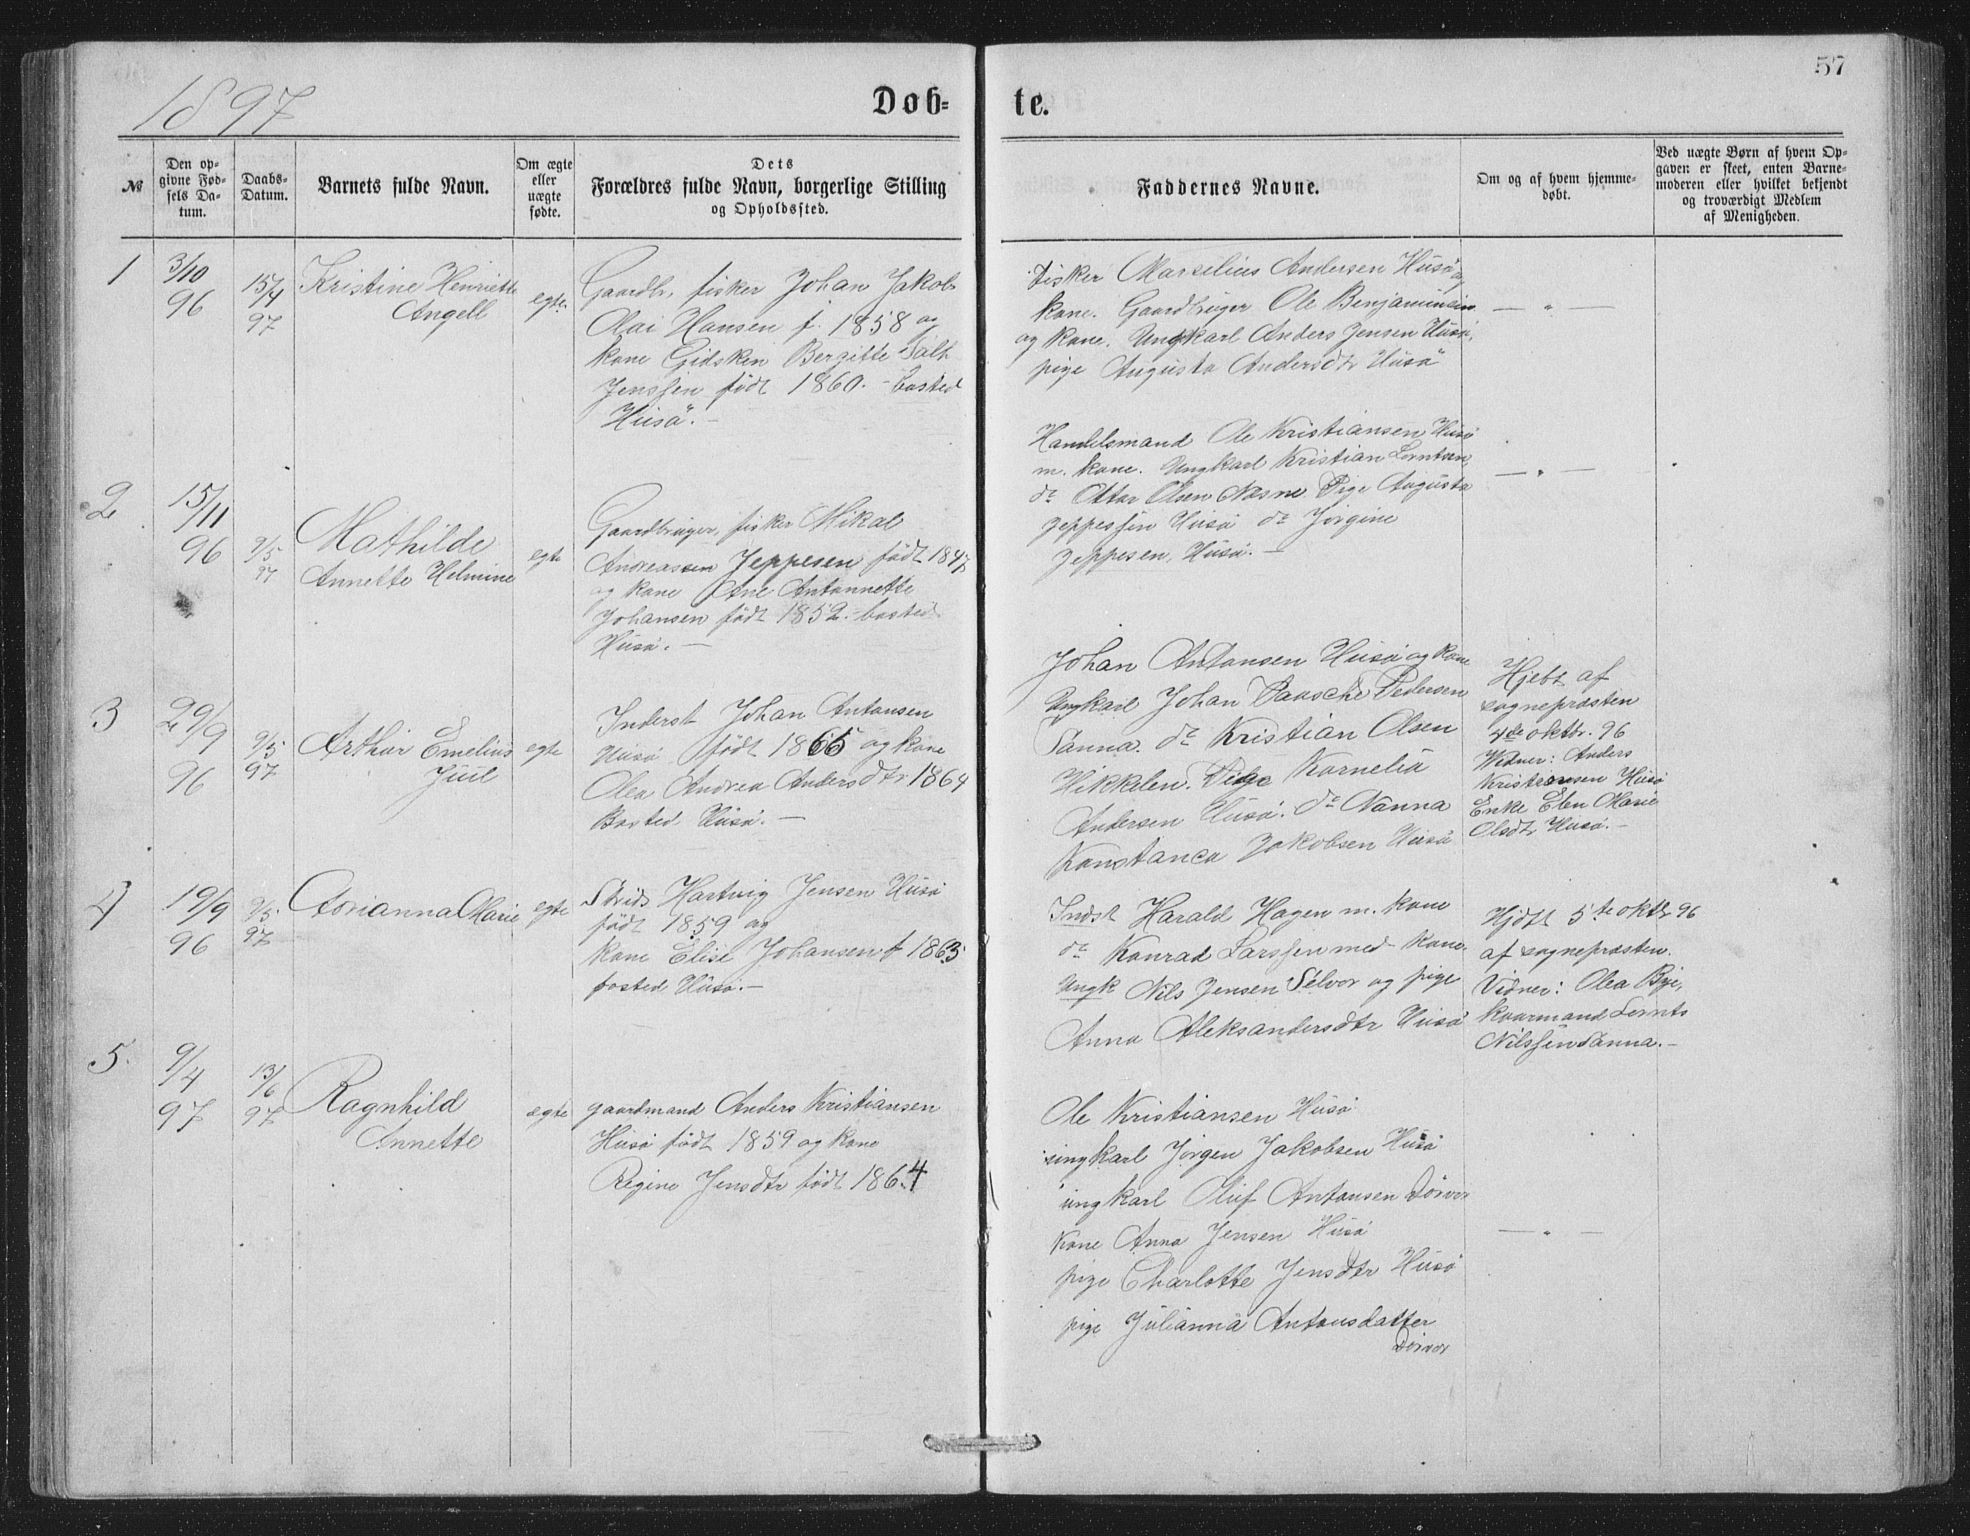 57
1897
Døb-
te.
№
Den op-
givne Fød-
sels Da-
tum.
Daabs-
Datum.
Barnets fulde Navn.
Om ægte
eller
uægte
fødte.
Dets
Forældres fulde Navn, borgerlige Stilling
og Opholdssted.
Faddernes Navne.
Om og af hvem hjemme-
døbt.
Ved uægte Børn af hvem Op-
gaven er skeet, enten Barne-
moderen eller hvilket bekjendt
og troværdigt Medlem
af Menigheden.
1
3/10
96
15/4
97
Kristine Henriette
Angell
egte
Gaardbr. fisker Johan Jakob
Olai Hansen f. 1858 og
kone Gidsken Bergitte
Jenssen født 1860. - bosted
Husø. -
Fisker Marselius Andersen Husø og
kone. Gaardbruger Ole Benjaminsen
og kone. Ungkarl Anders Jensen Husø,
pige Augusta Andersdtr Husø
— " —
2
15/11
96
9/5
97
Mathilde
Annette Helmine
egte
Gaardbruger, fisker Mikal
Andreassen Jeppesen født 1847
og kone Ane Antonnette
Johansen født 1852. - bosted
Husø. —
Handelsmand Ole Kristiansen Husø
m. kone. Ungkarl Kristian Lorntsen,
do Ottar Olsen Næsne Pige Augusta
Jeppessen Husø do Jørgine
Jeppesen, Husø. —
— " —
3
29/9
96
9/5
97
Arthur Emelius
Juul
egte
Inderst Johan Antonsen
Husø født 1865 og kone
Olea Andrea Andersdtr 1864
Bosted Husø. —
Johan Antonsen Husø og kone
Ungkarl Johan Paasche Pedersen
Sanna. do Kristian Olsen
Hikkelen. Pige Kornelia
Andersen Husø. do Nanna
Konstance Jakobsen Husø
Hjebt af
sognepræsten
4de oktbr. 96
Vidner: Anders
Kristiansen Husø
Enke Elen Marie
Olsdtr Husø. —
4
19/9
96
9/5
97
Adrianna Marie
egte
Hartvig Jensen Husø
født 1859 og
kone Elise Johansen f 1863
bosted Husø. —
Indst Harald Hagen m. kone
do Konrad Larssen med kone.
Ungk Nils Jensen Selvor og pige
Anna Aleksandersdtr Husø
Hjdft 5te oktbr 96
af sognepræsten.
Vidner: Olea Bye,
kaarmand Lornts
Nilssen Sanna. —
5.
9/4
97
13/6
97
Ragnhild
Annette
ægte
gaardmand Anders Kristiansen
Husø født 1859 og kone
Regine Jensdtr født 1864
Ole Kristiansen Husø
ungkarl Jørgen Jakobsen Husø
ungkarl Oluf Antonsen Dørvær
kone Anna Jensen Husø
pige Charlotte Jensdtr Husø
pige Julianna Antonsdatter
Dørvær
— " —